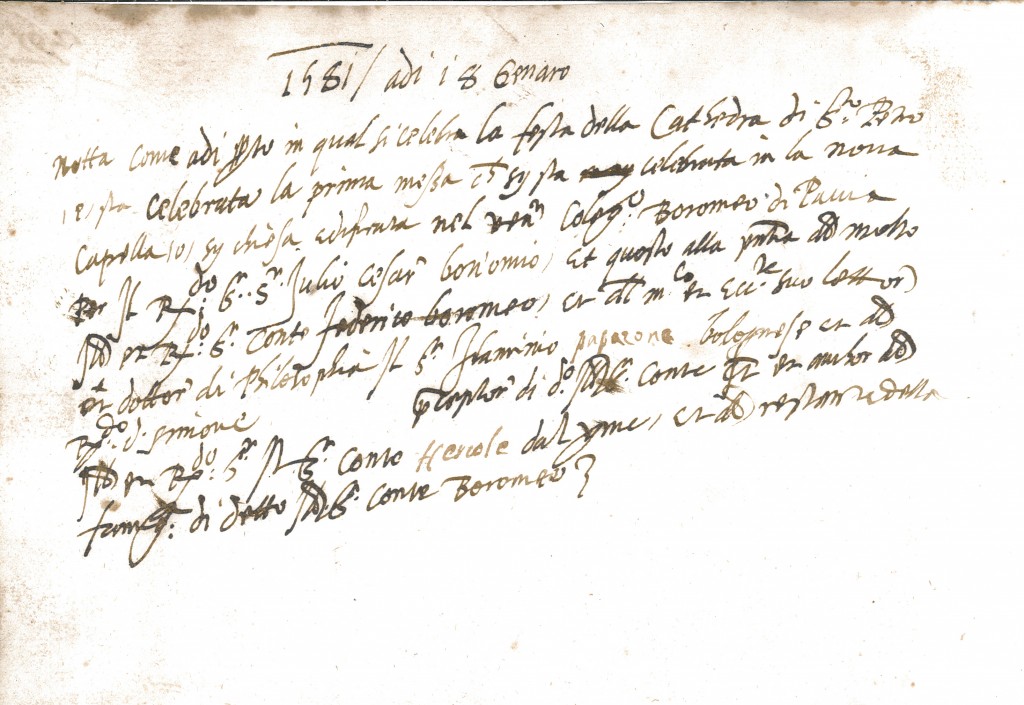 1581 / adi 18 Genaro
notta come adi in qual si celebra la festa della Cathedra di S.to Petro
è sta celebrata la prima messa sia sta celebrata in la nova
Capella, o, sij chiesa edificata nel ven. Coleg.o Boromeo di Pavia
Per Il R.do S.r Julio Cesar, et questo alla p̄ntia del molto
Ill. et R.do S.r Conte federico boromeo, et del m.co et Ecc.te suo lettor
et dottor di Philosophia Il S.r Flaminio paparone bolognese et del
R.do d. simone p̄ceptor di d.o S.r conte et anchor del
Ill. et R.do S.r Il S.r Conte Hercole dal, et del restante della
fameg.a di detto S.r conte Boromeo